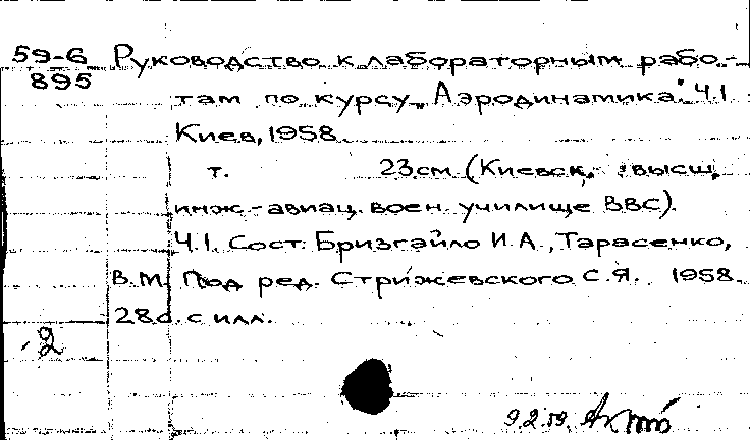 59-6 Руководство к лабораторным рабо-
895
там по курсу „Аэродинамика". Ч.1
Киев, 1958.
т. 23см (Киевск. высш.
инж.-авиац. воен. училище ВВС).
Ч.1. Сост. Бризгайло И.А., Тарасенко,
В.М. Под ред. Стрижевского С.Я. 1958.
28с. с илл.
2
9.2.59.